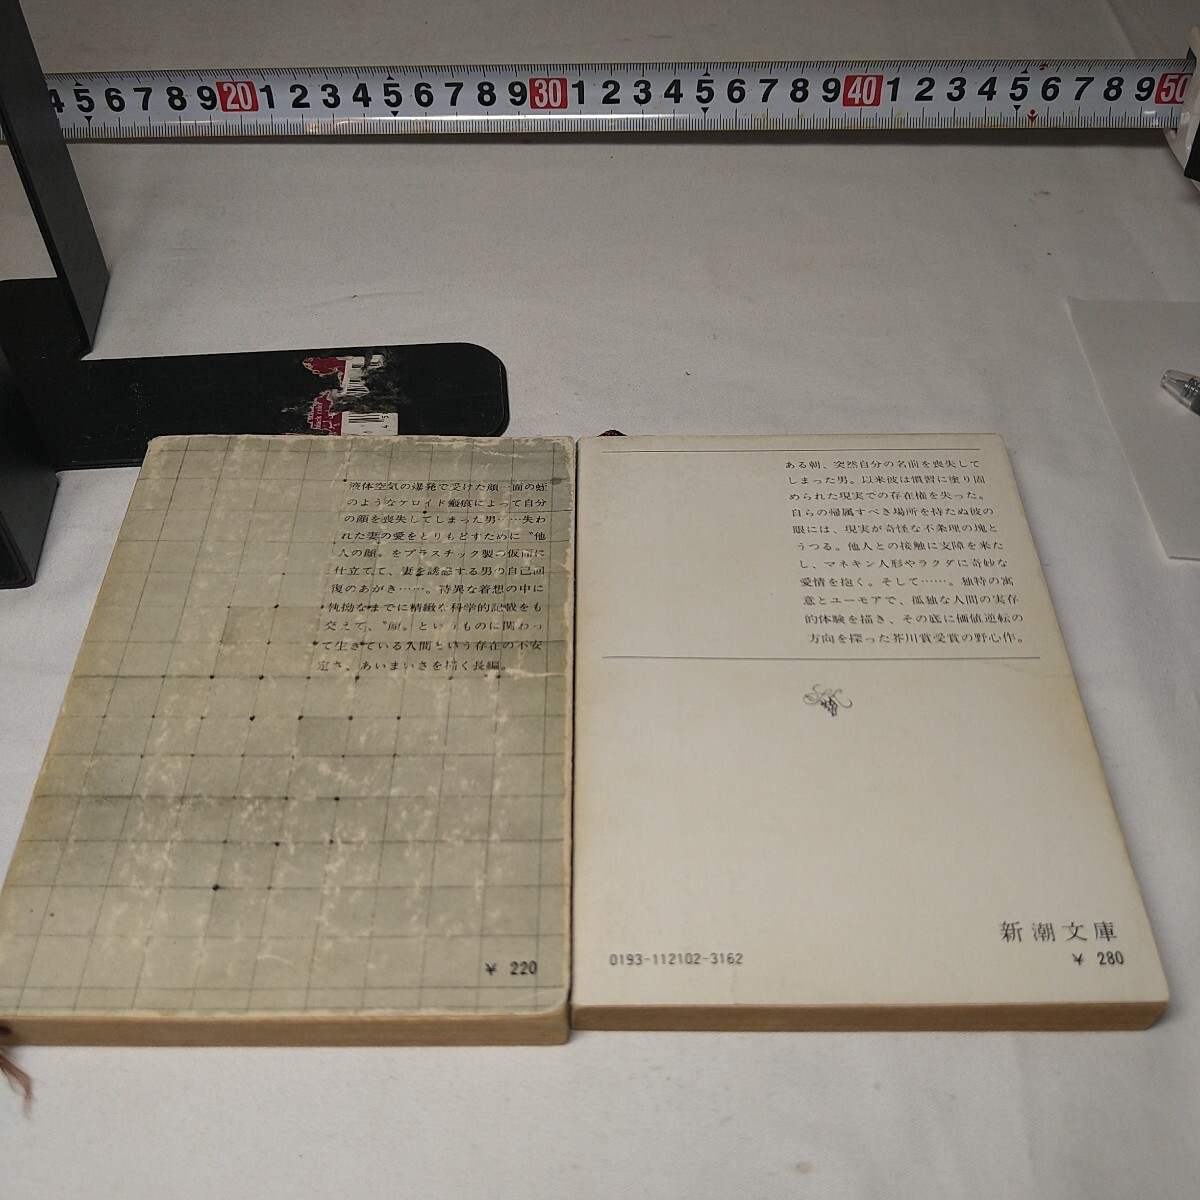 4 5 6 7 8 9 20 1 2 3 4 5 6 7 8 9 30 1 2 3 4 5 6 7 8 9 40 1 2 3 4 5 6 7 8 9 50
black color
液体空気の爆発で受けた顔一面の蛭
のようなケロイド瘢痕によって自分
の顔を喪失してしまった男……失わ
れた妻の愛をとりもどすために〝他
人の顔〟をプラスチック製の仮面に
仕立てて、妻を誘惑する男の自己回
復のあがき……。特異な着想の中に
執拗なまでに精緻な科学的記載をも
交えて、〝顔〟というものに関わっ
て生きている人間という存在の不安
定さ、あいまいさを描く長編。
¥ 220
ある朝、突然自分の名前を喪失して
しまった男。以来彼は慣習に塗り固
められた現実での存在権を失った。
自らの帰属すべき場所を持たぬ彼の
眼には、現実が奇怪な不条理の塊と
うつる。他人との接触に支障を来た
し、マネキン人形やラクダに奇妙な
愛情を抱く。そして……。独特の寓
意とユーモアで、孤独な人間の実存
的体験を描き、その底に価値逆転の
方向を探った芥川賞受賞の野心作。
新潮文庫
0193-112102-3162
¥ 280